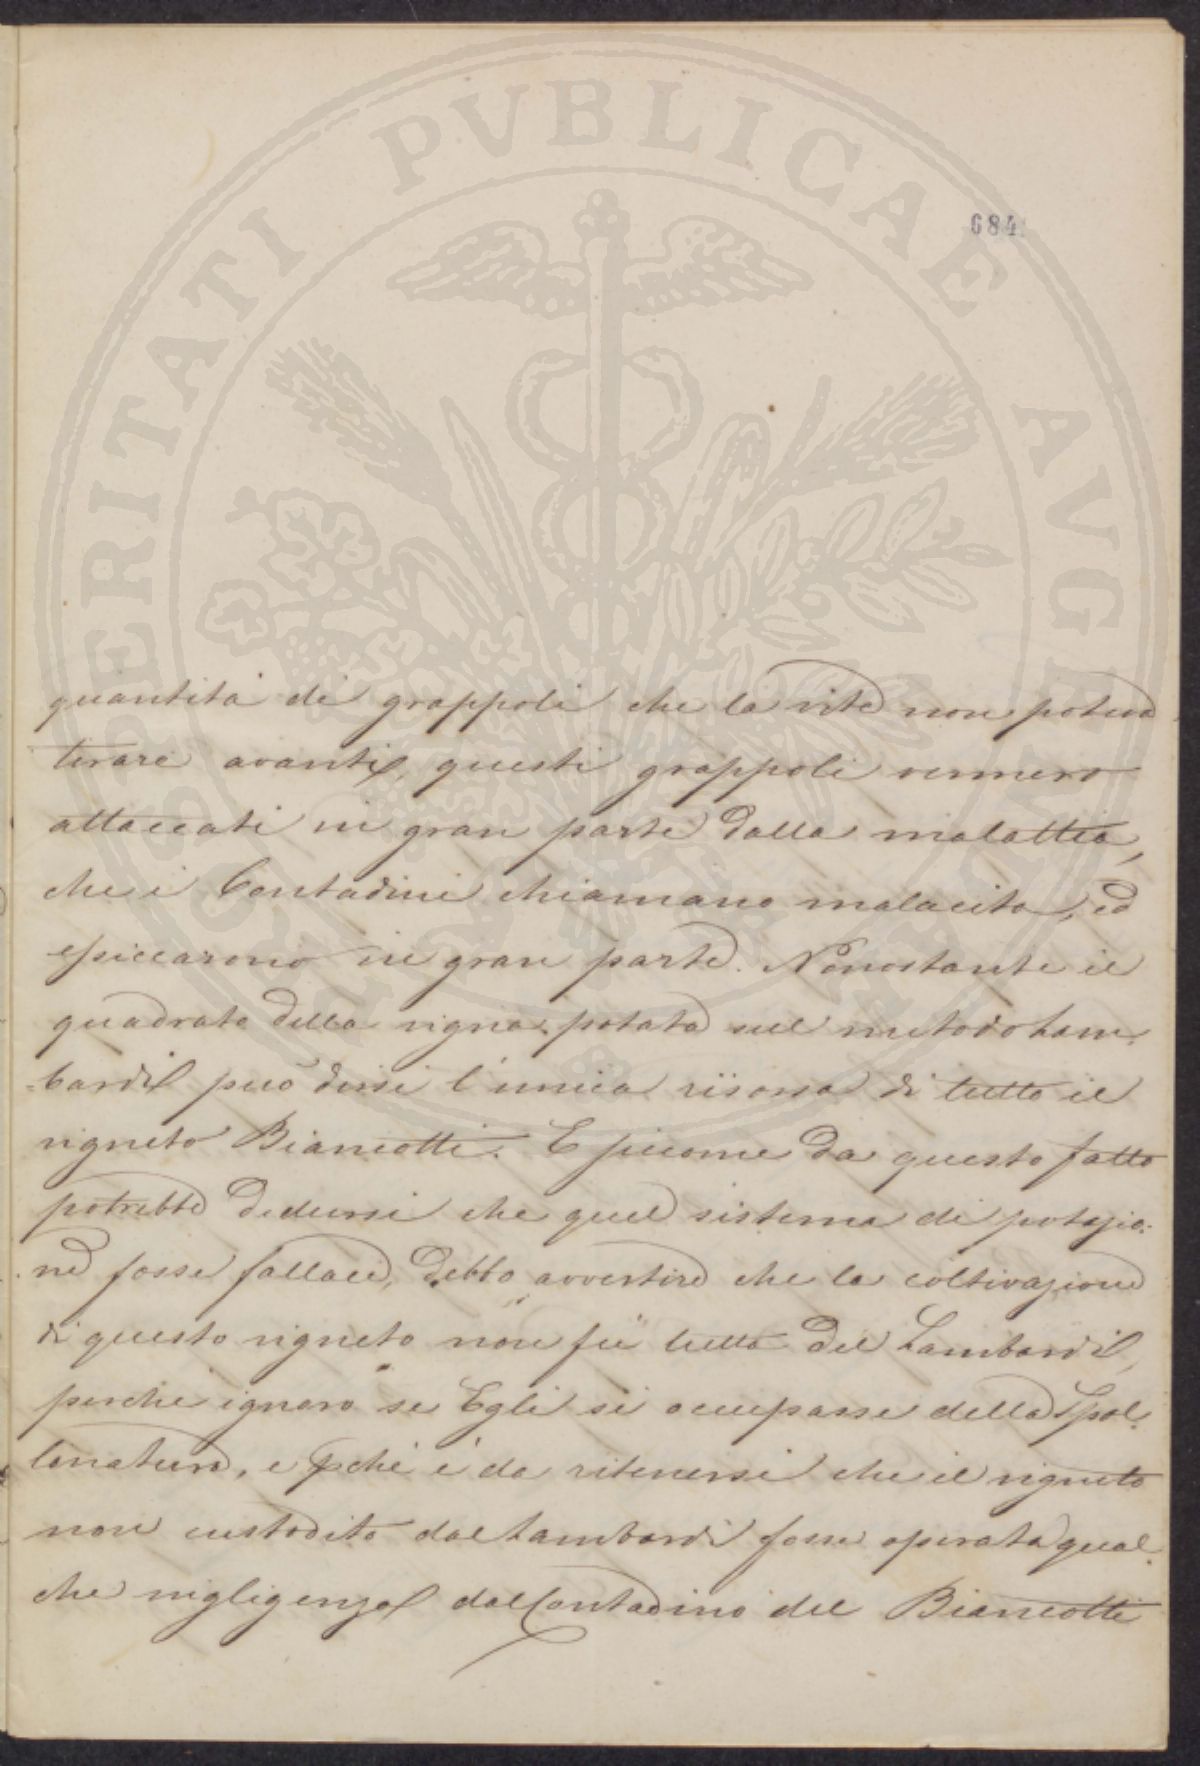 PROSPERITATI PVBLICAE AVGENDAE
684
quantità di grappoli che la vite non poteva
tirare avanti, questi grappoli vennero
attaccati in gran parte dalla malattia,
che i Contadini chiamano malacita, ed
essiccarono in gran parte. Nonostante il
quadrato della vigna potata sul metodo Lam-
-bardi può dirsi l'unica risorsa di tutto il
vigneto Biancotti. E siccome da questo fatto
potrebbe dedursi che quel sistema di potazio-
ne fosse fallace, debbo avvertire che la coltivazione
di questo vigneto non fu tutta del Lambardi,
perchè ignoro se Egli si occupasse della Spol-
lonatura, e pchè è da ritenersi che il vigneto
non custodito dal Lambardi fosse operata qual-
che nigligenza dal Contadino del Biancotti